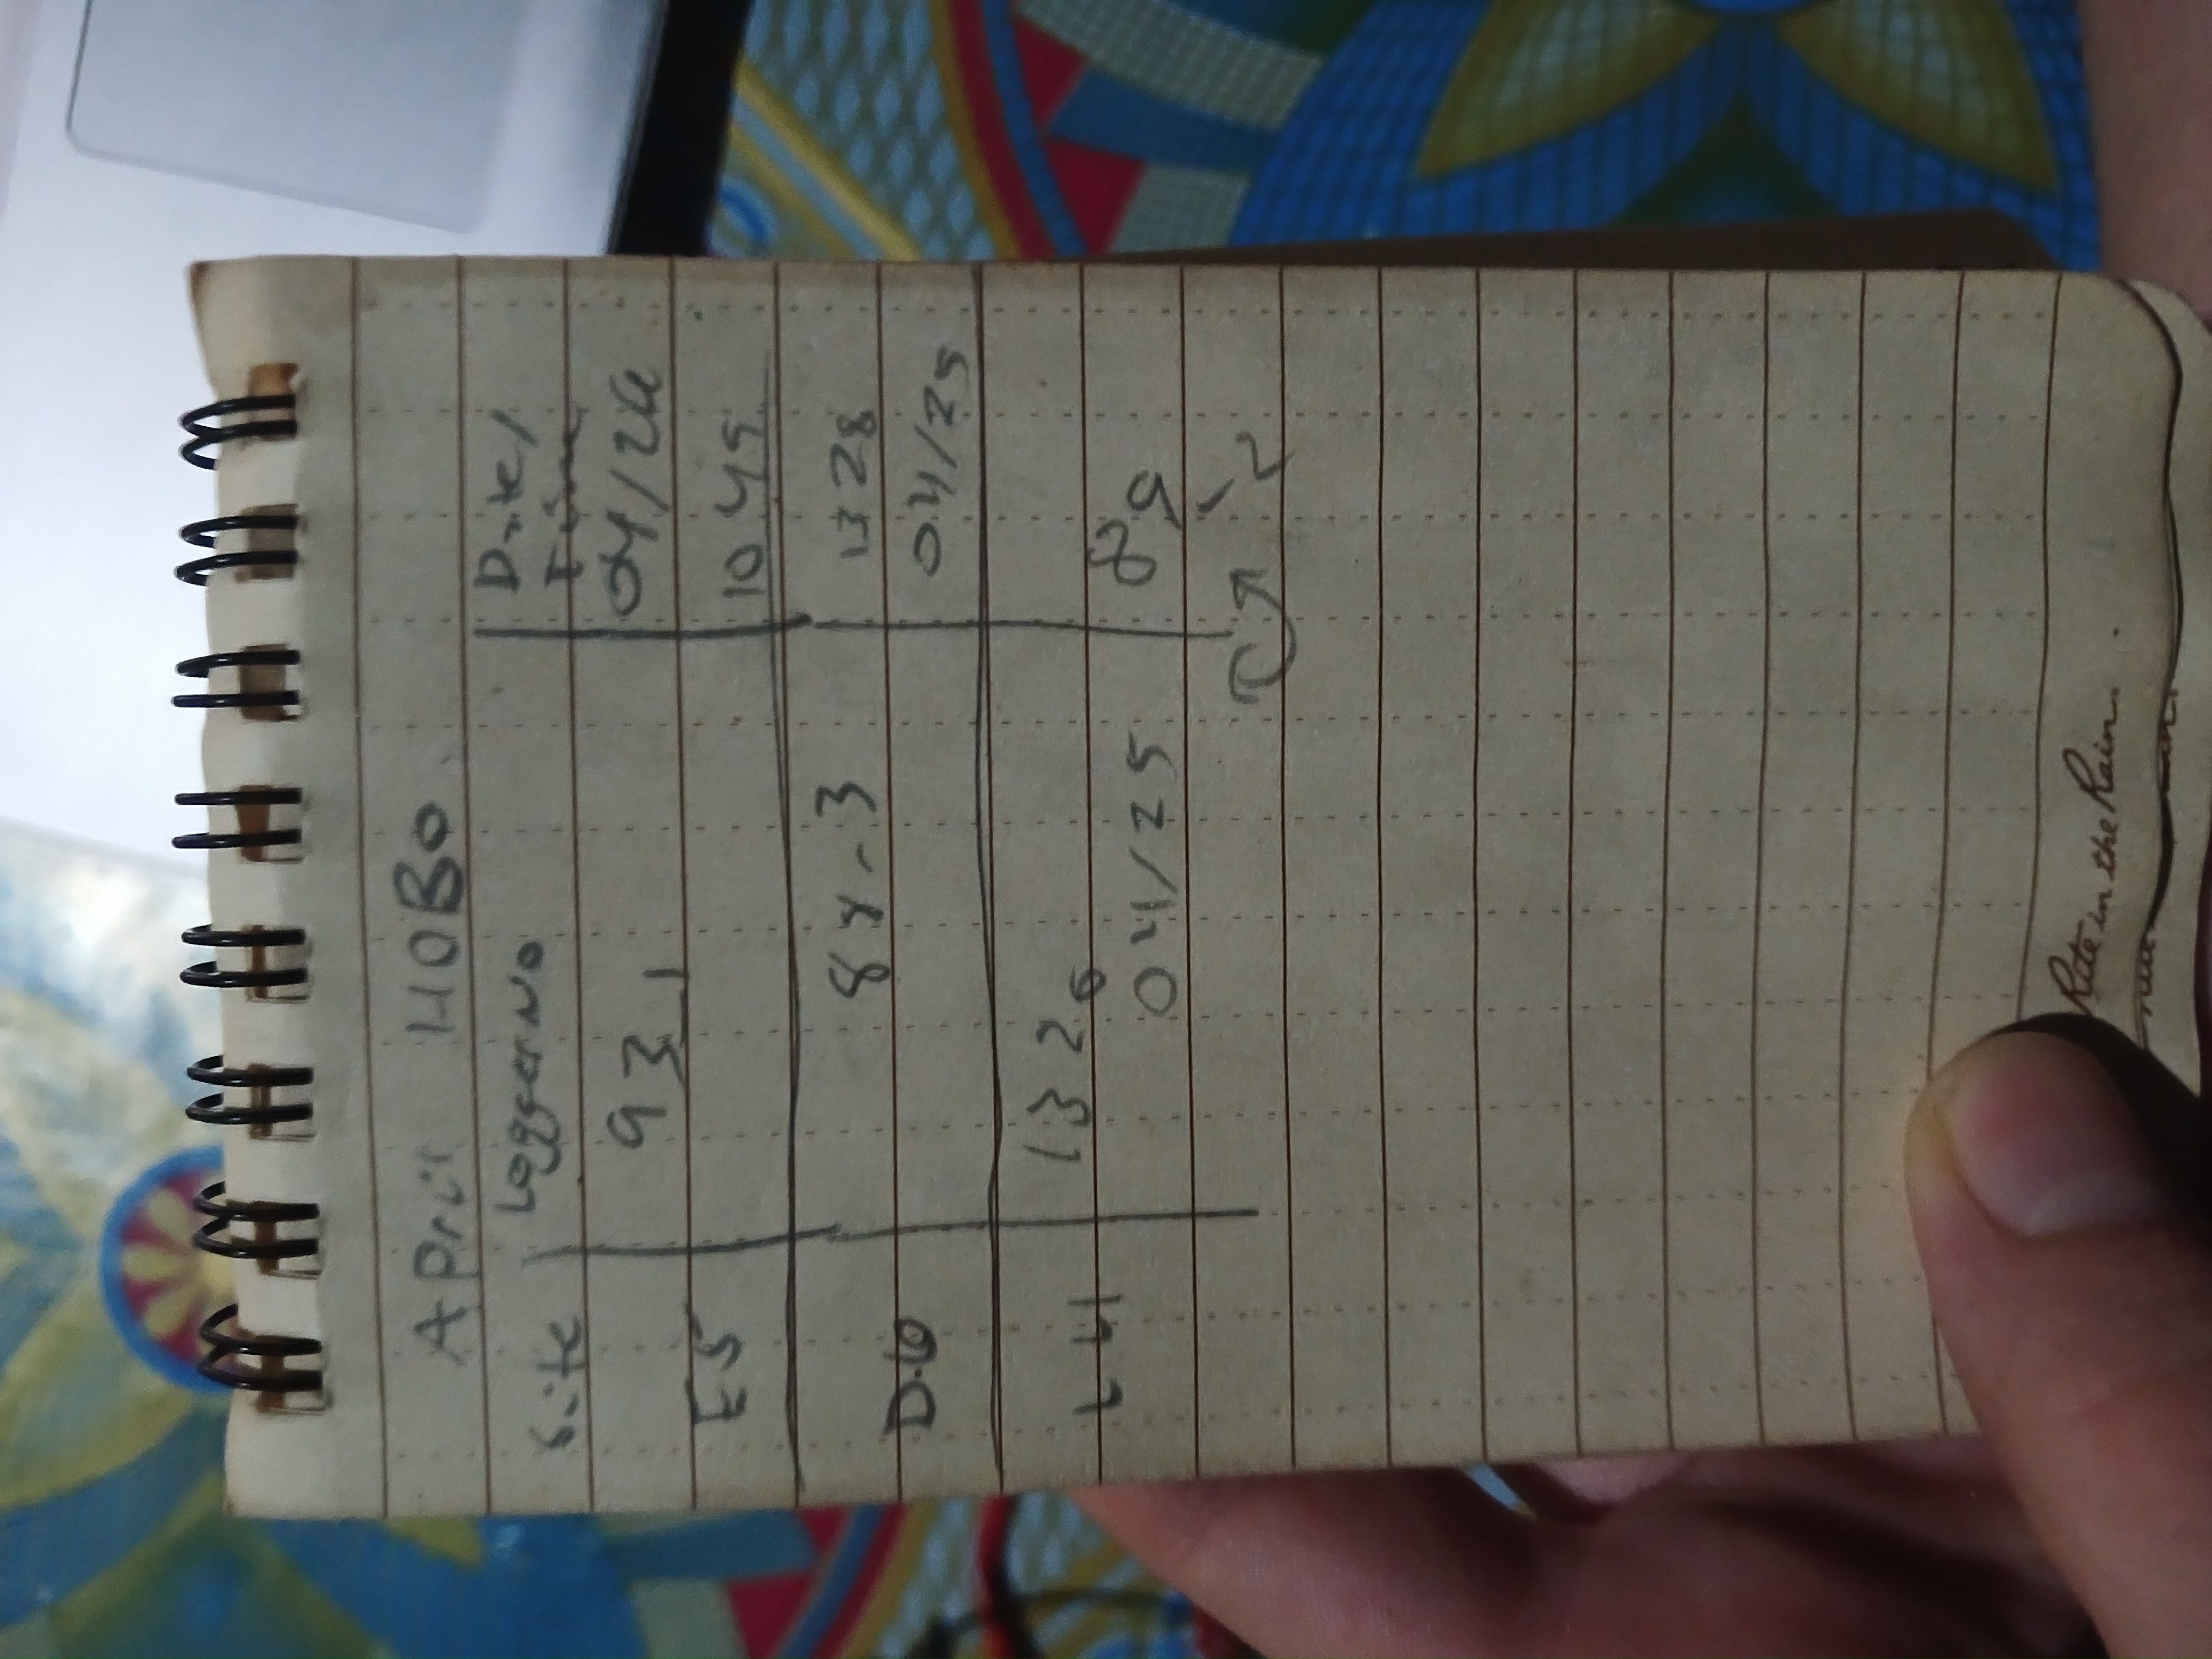 April HOBO
Site Logger No Date/
Time
93_1 04/26
E5 1045
88-3 1328
D.6 04/25
1320
L4 04/25 89-2
Rite in the Rain.